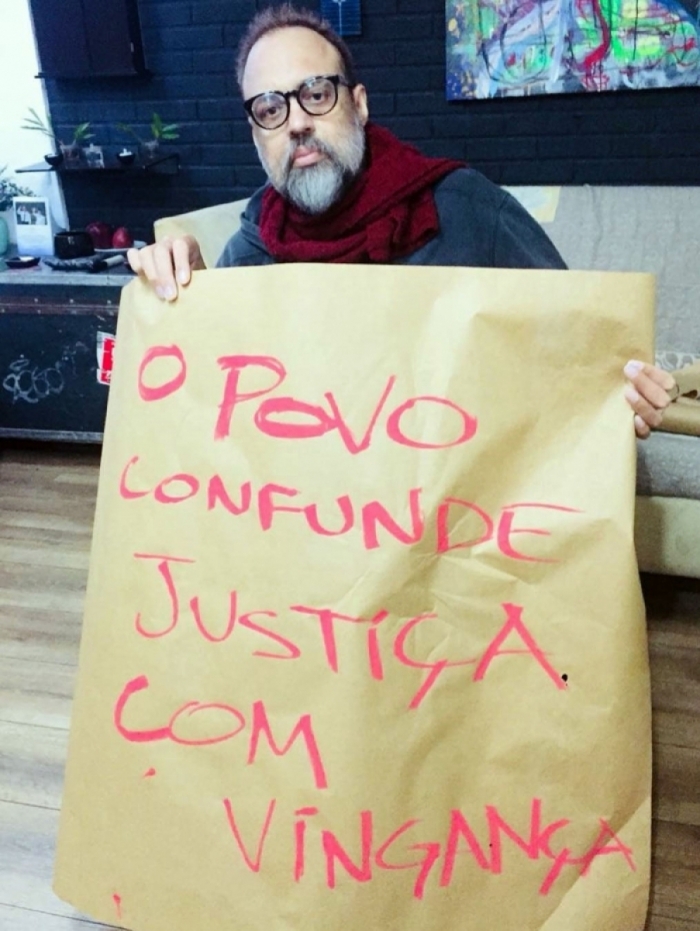 O POVO
CONFUNDE
JUSTIÇA
COM
VINGANÇA